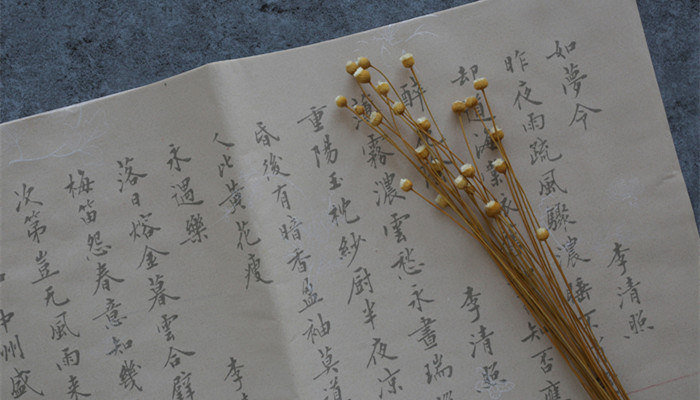 如夢令 李清照
昨夜雨疏風驟濃睡不
却道海棠依 知否應
醉 李清照
薄霧濃雲愁永晝瑞
重陽玉枕紗厨半夜凉
昏後有暗香盈袖莫道
人比黃花瘦
永遇樂 李
落日熔金暮雲合璧
梅笛怨春意知幾
次第豈无風雨来
中州盛